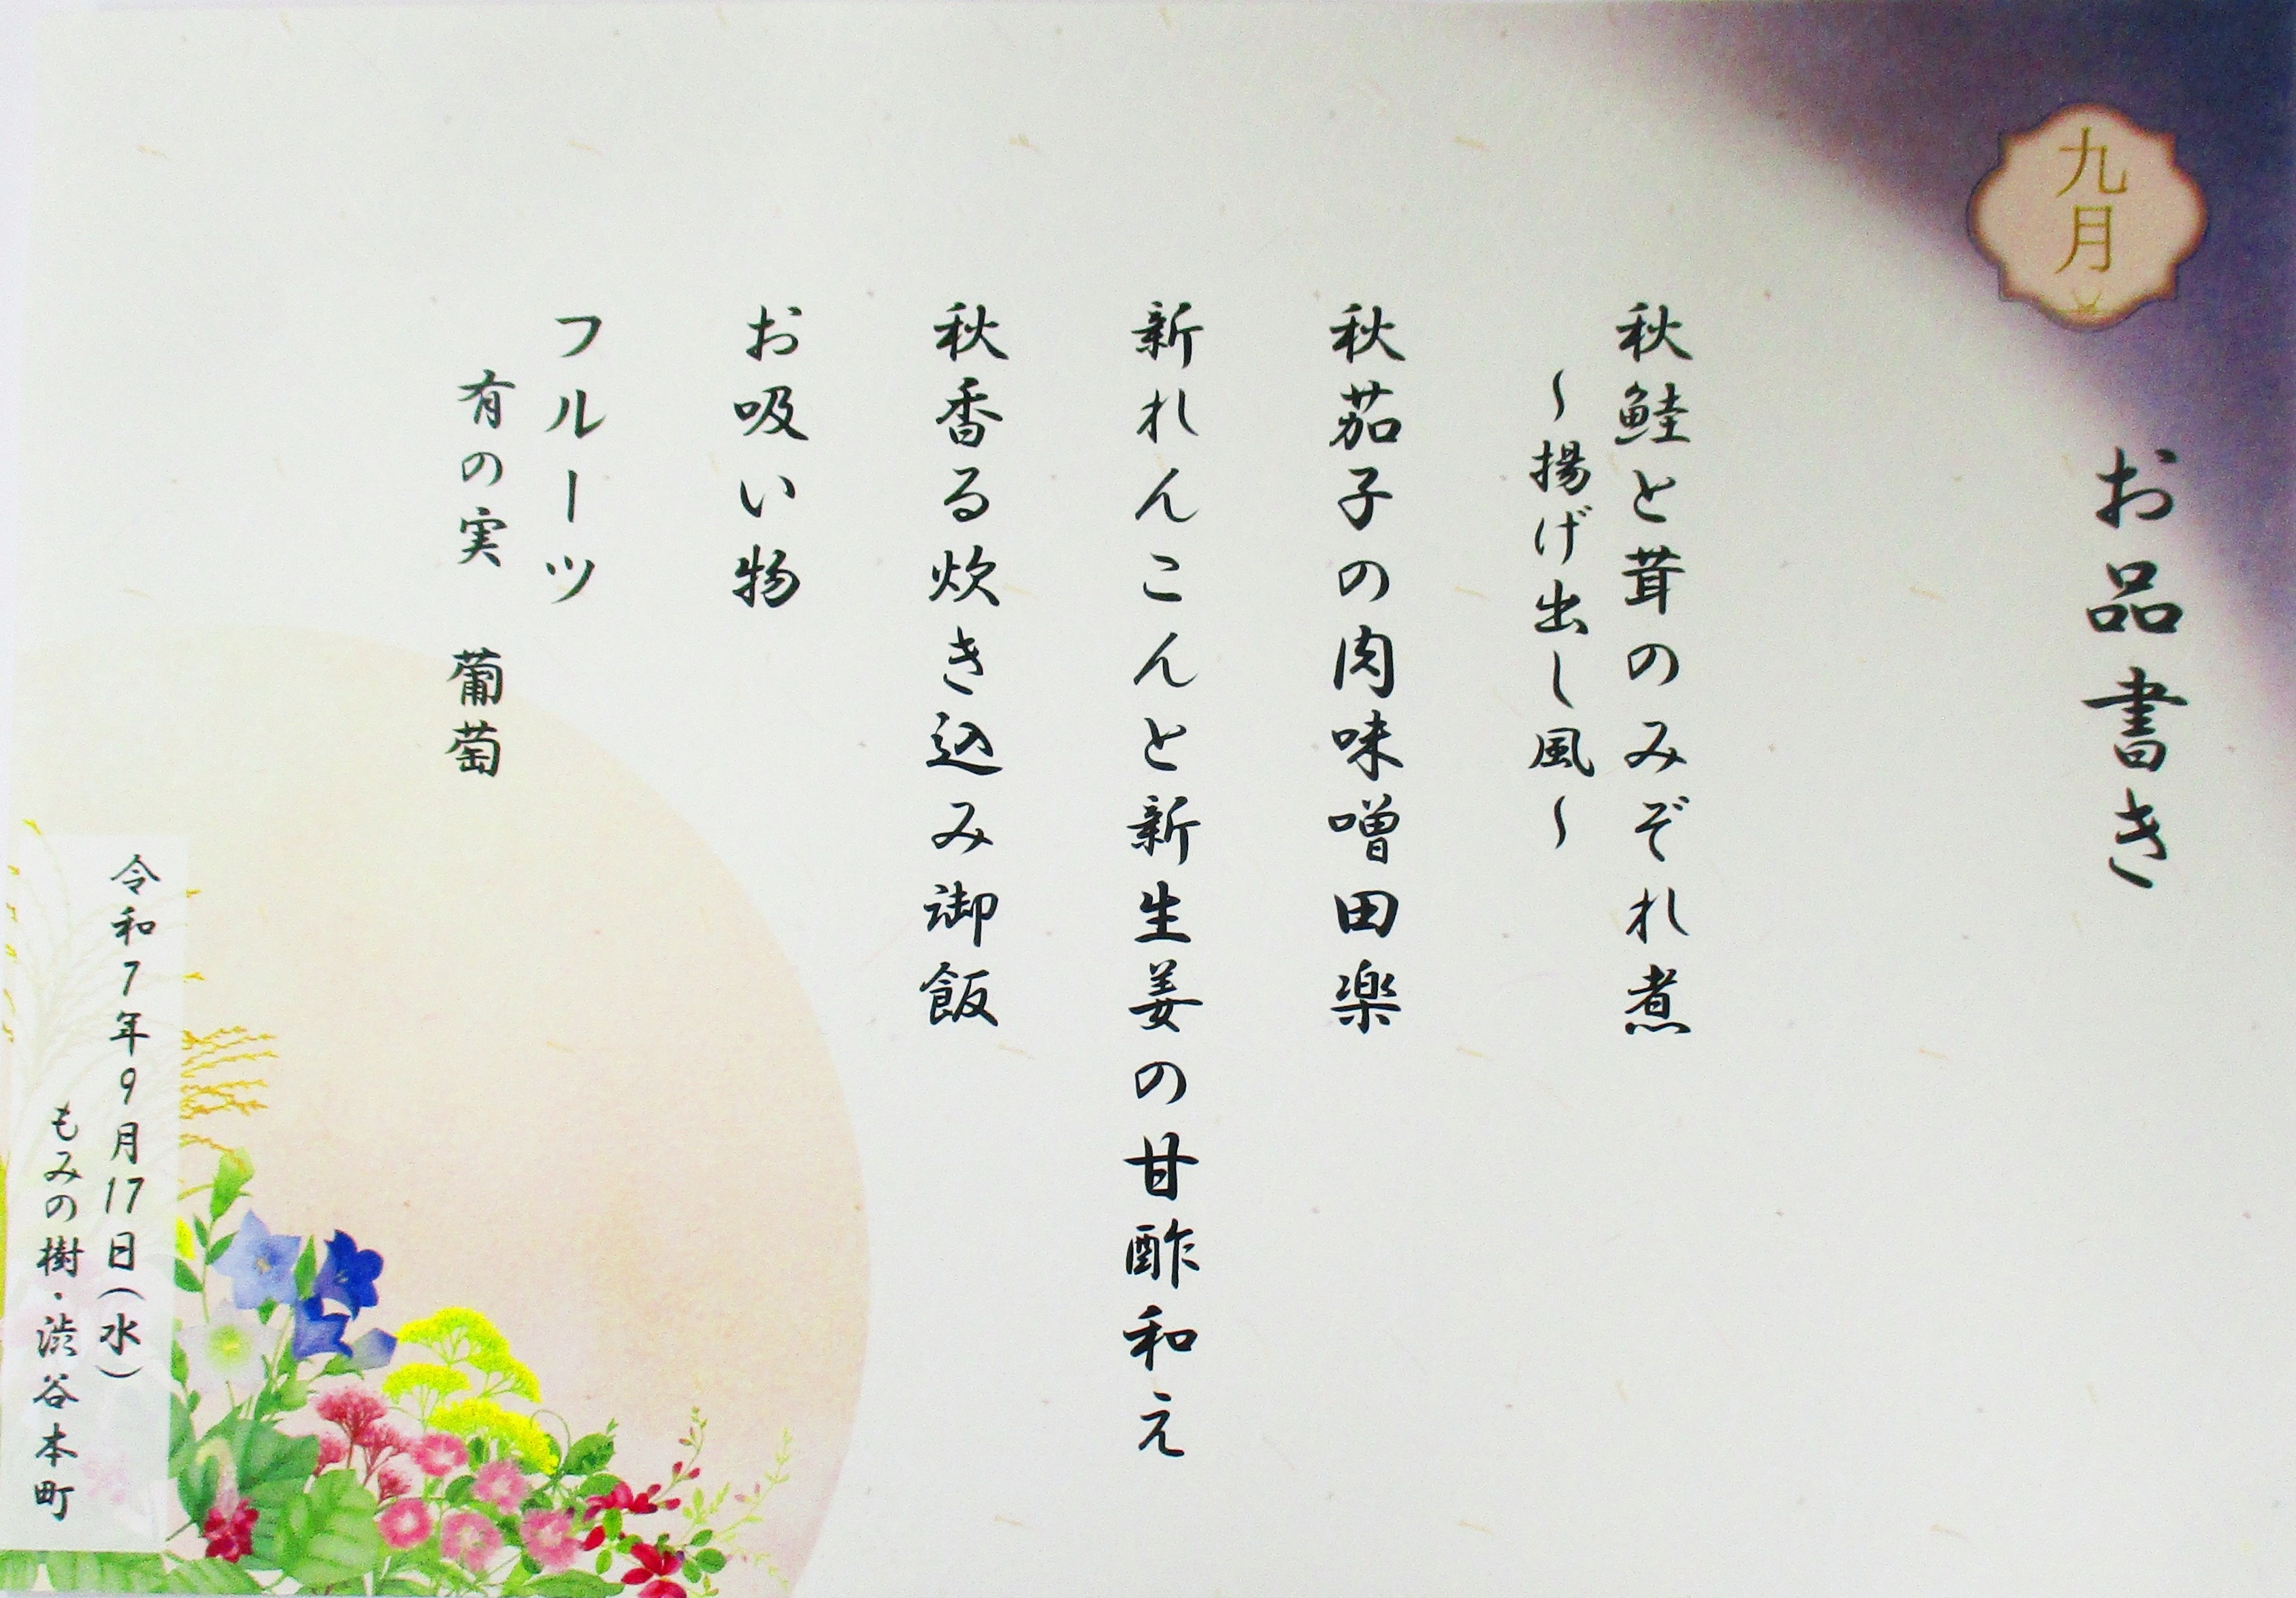 九月
お品書き
秋鮭と茸のみぞれ煮
～揚げ出し風～
秋茄子の肉味噌田楽
新れんこんと新生姜の甘酢和え
秋香る炊き込み御飯
お吸い物
フルーツ
有の実　葡萄
令和7年9月17日(水)
もみの樹・渋谷本町